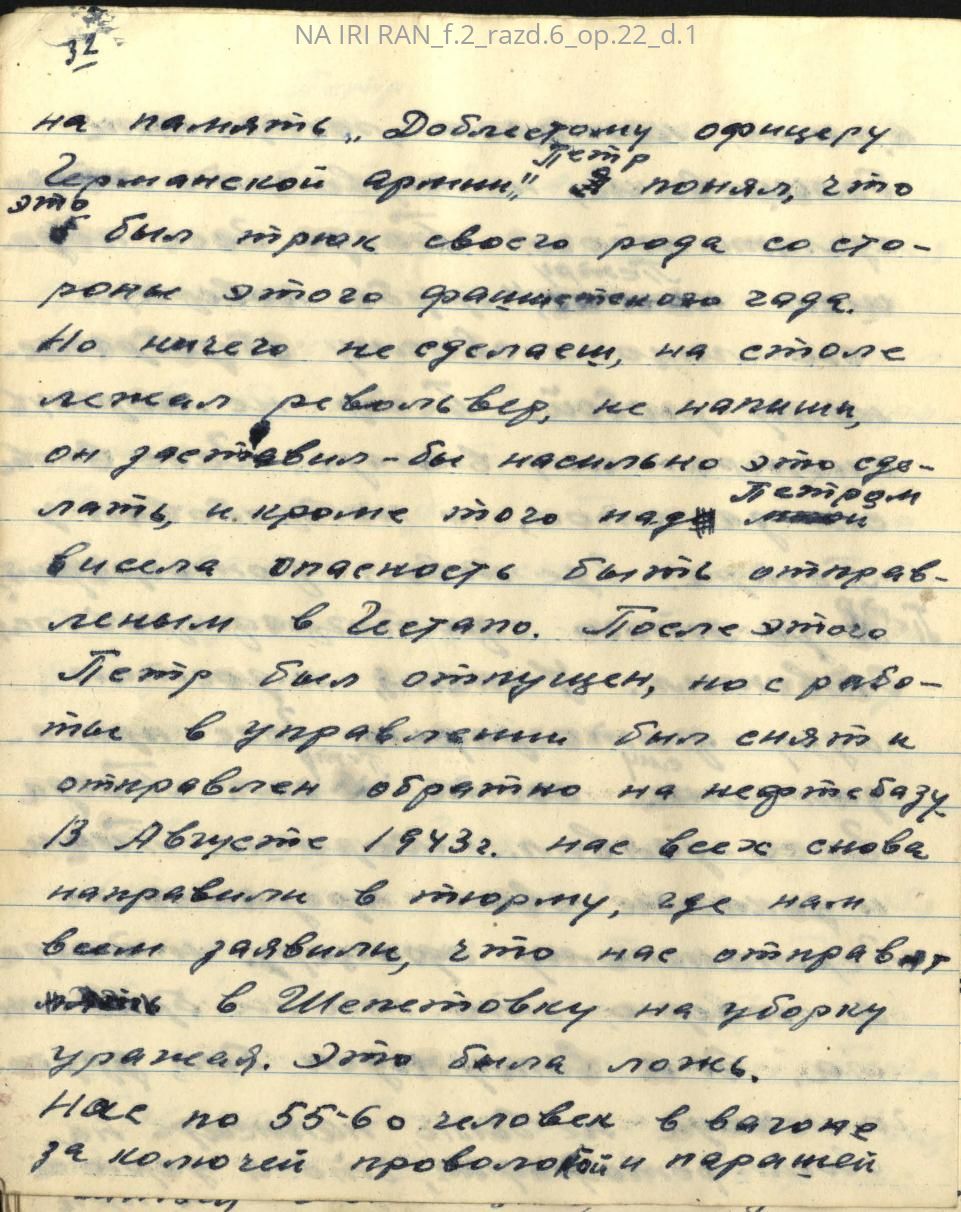 NA IRI RAN_f.2_razd.6_op.22_d.1
32
на память „Доблестому офицеру
Петр
Германской армии„" понял, что
это
был трюк своего рода со сто-
роны этого фашистского гада.
Но ничего не сделаеш, на столе
лежал револьвер, не напиши,
он заставил-бы насильно это сде-
Петром
лать, и кроме того над мной
висела опасность быть отправ-
леным в Гестапо. После этого
Петр был отпущен, но с рабо-
ты в управлении был снят и
отправлен обратно на нефтебазу
В Августе 1943г. нас всех снова
направили в тюрму, где нам
всем заявили, что нас отправят
в Шепетовку на уборку
уражая. Это была ложь.
Нас по 55-60 человек в вагоне
за колючей проволокой и парашей